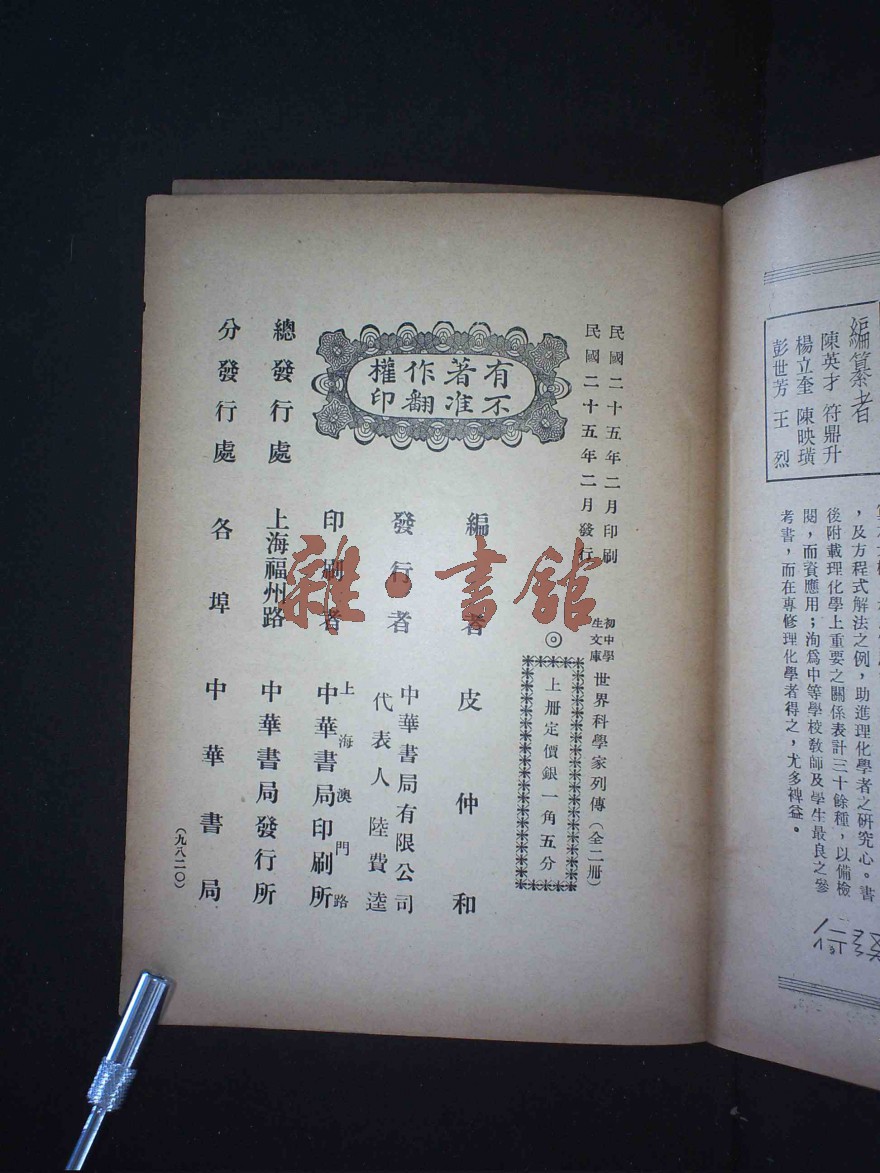 編纂者
陳英才 符鼎升
楊立奎 陳映璜
彭世芳 王烈
，及方程式解法之例，助進理化學者之研究心。書
後附載理化學上重要之關係表計三十餘種，以備檢
閱，而資應用；洵爲中等學校敎師及學生最良之參
考書，而在專修理化學者得之，尤多裨益。
民國二十五年二月印刷
民國二十五年二月發行
初中學生文庫 世界科學家列傳（全二册）
◎上册定價銀一角五分
有著作權
不准翻印
編者 皮仲和
發行者 中華書局有限公司
代表人 陸費逵
印刷者 上海澳門路
中華書局印刷所
總發行處 上海福州路 中華書局發行所
分發行處 各埠 中華書局
（九八二〇）
雜·書館